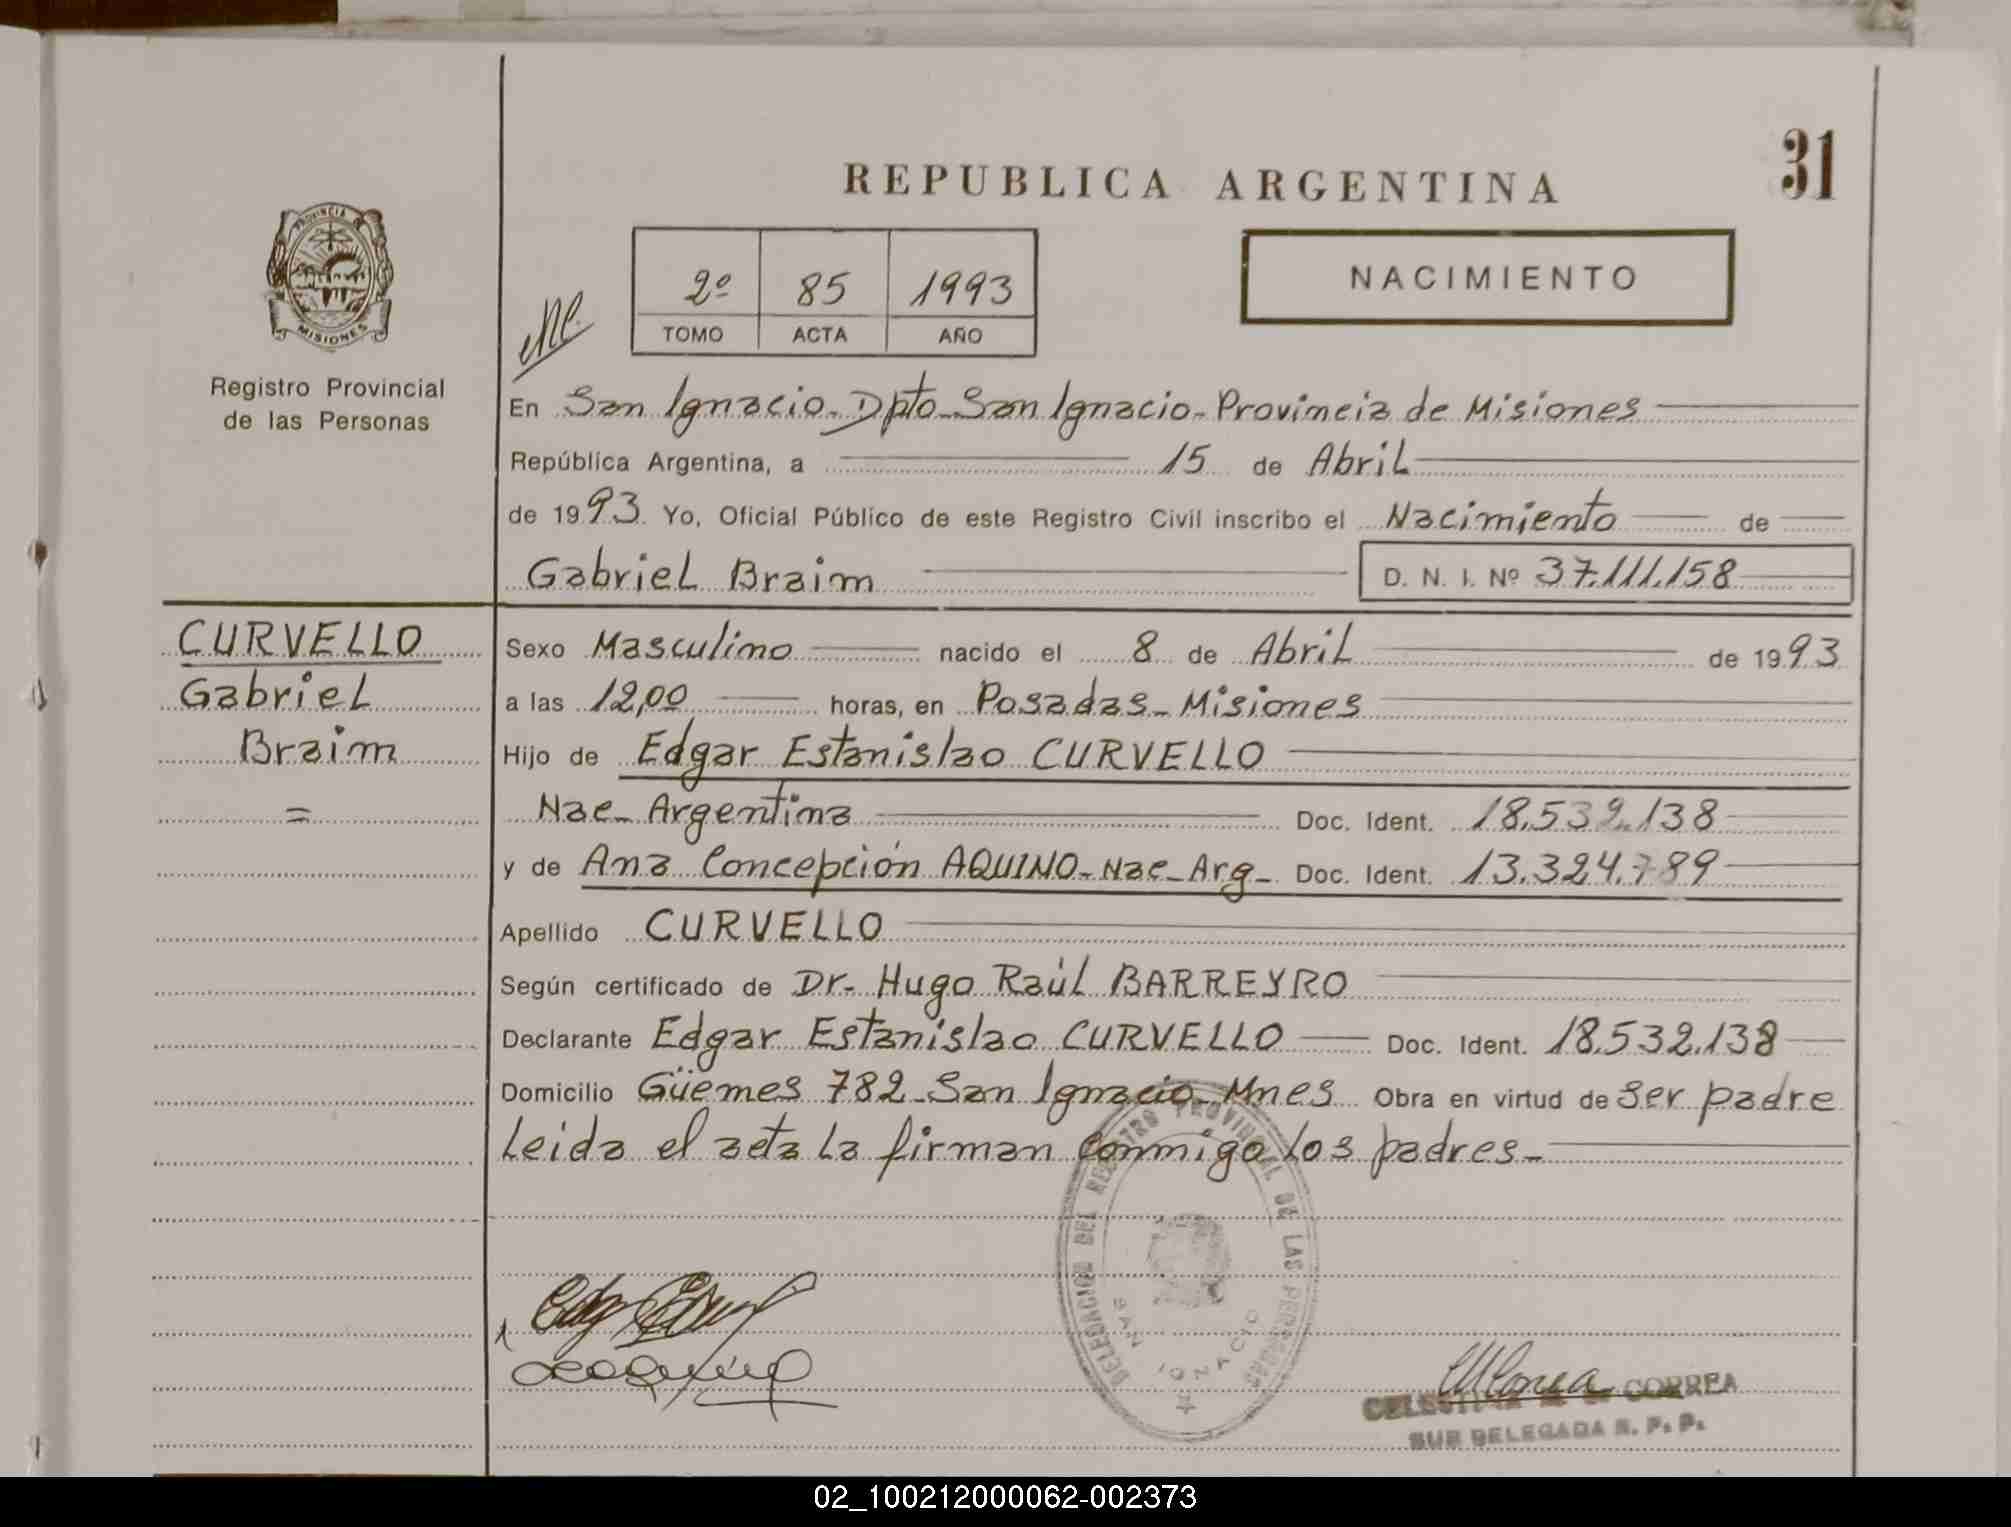 REPUBLICA ARGENTINA
31
PROVINCIA DE
MISIONES
Registro Provincial
de las Personas
2º 85 1993
TOMO ACTA AÑO
NACIMIENTO
En San Ignacio - Dpto - San Ignacio - Provincia de Misiones
República Argentina, a 15 de Abril
de 1993. Yo, Oficial Público de este Registro Civil inscribo el Nacimiento de
Gabriel Braim D. N. I. Nº 37.111.158
CURVELLO
Gabriel
Braim
=
Sexo Masculino nacido el 8 de Abril de 1993
a las 12,00 horas, en Posadas - Misiones
Hijo de Edgar Estanislao CURVELLO
Nac - Argentina Doc. Ident. 18.532.138
y de Ana Concepción AQUINO - Nac - Arg - Doc. Ident. 13.324.789
Apellido CURVELLO
Según certificado de Dr - Hugo Raúl BARREYRO
Declarante Edgar Estanislao CURVELLO Doc. Ident. 18.532.138
Domicilio Güemes 782 - San Ignacio - Mnes Obra en virtud de ser padre
Leida el acta la firman conmigo los padres -
DELEGACION DEL REGISTRO PROVINCIAL DE LAS PERSONAS
SAN IGNACIO
CORREA
SUB DELEGADA R. P. P.
02_100212000062-002373